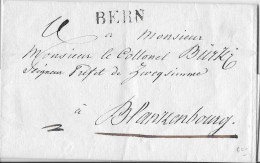 BERN
à Monsieur
Monsieur le Collonel Bürki
Seigneur Préfet de Zweysimmen
à
Blanzenbourg.